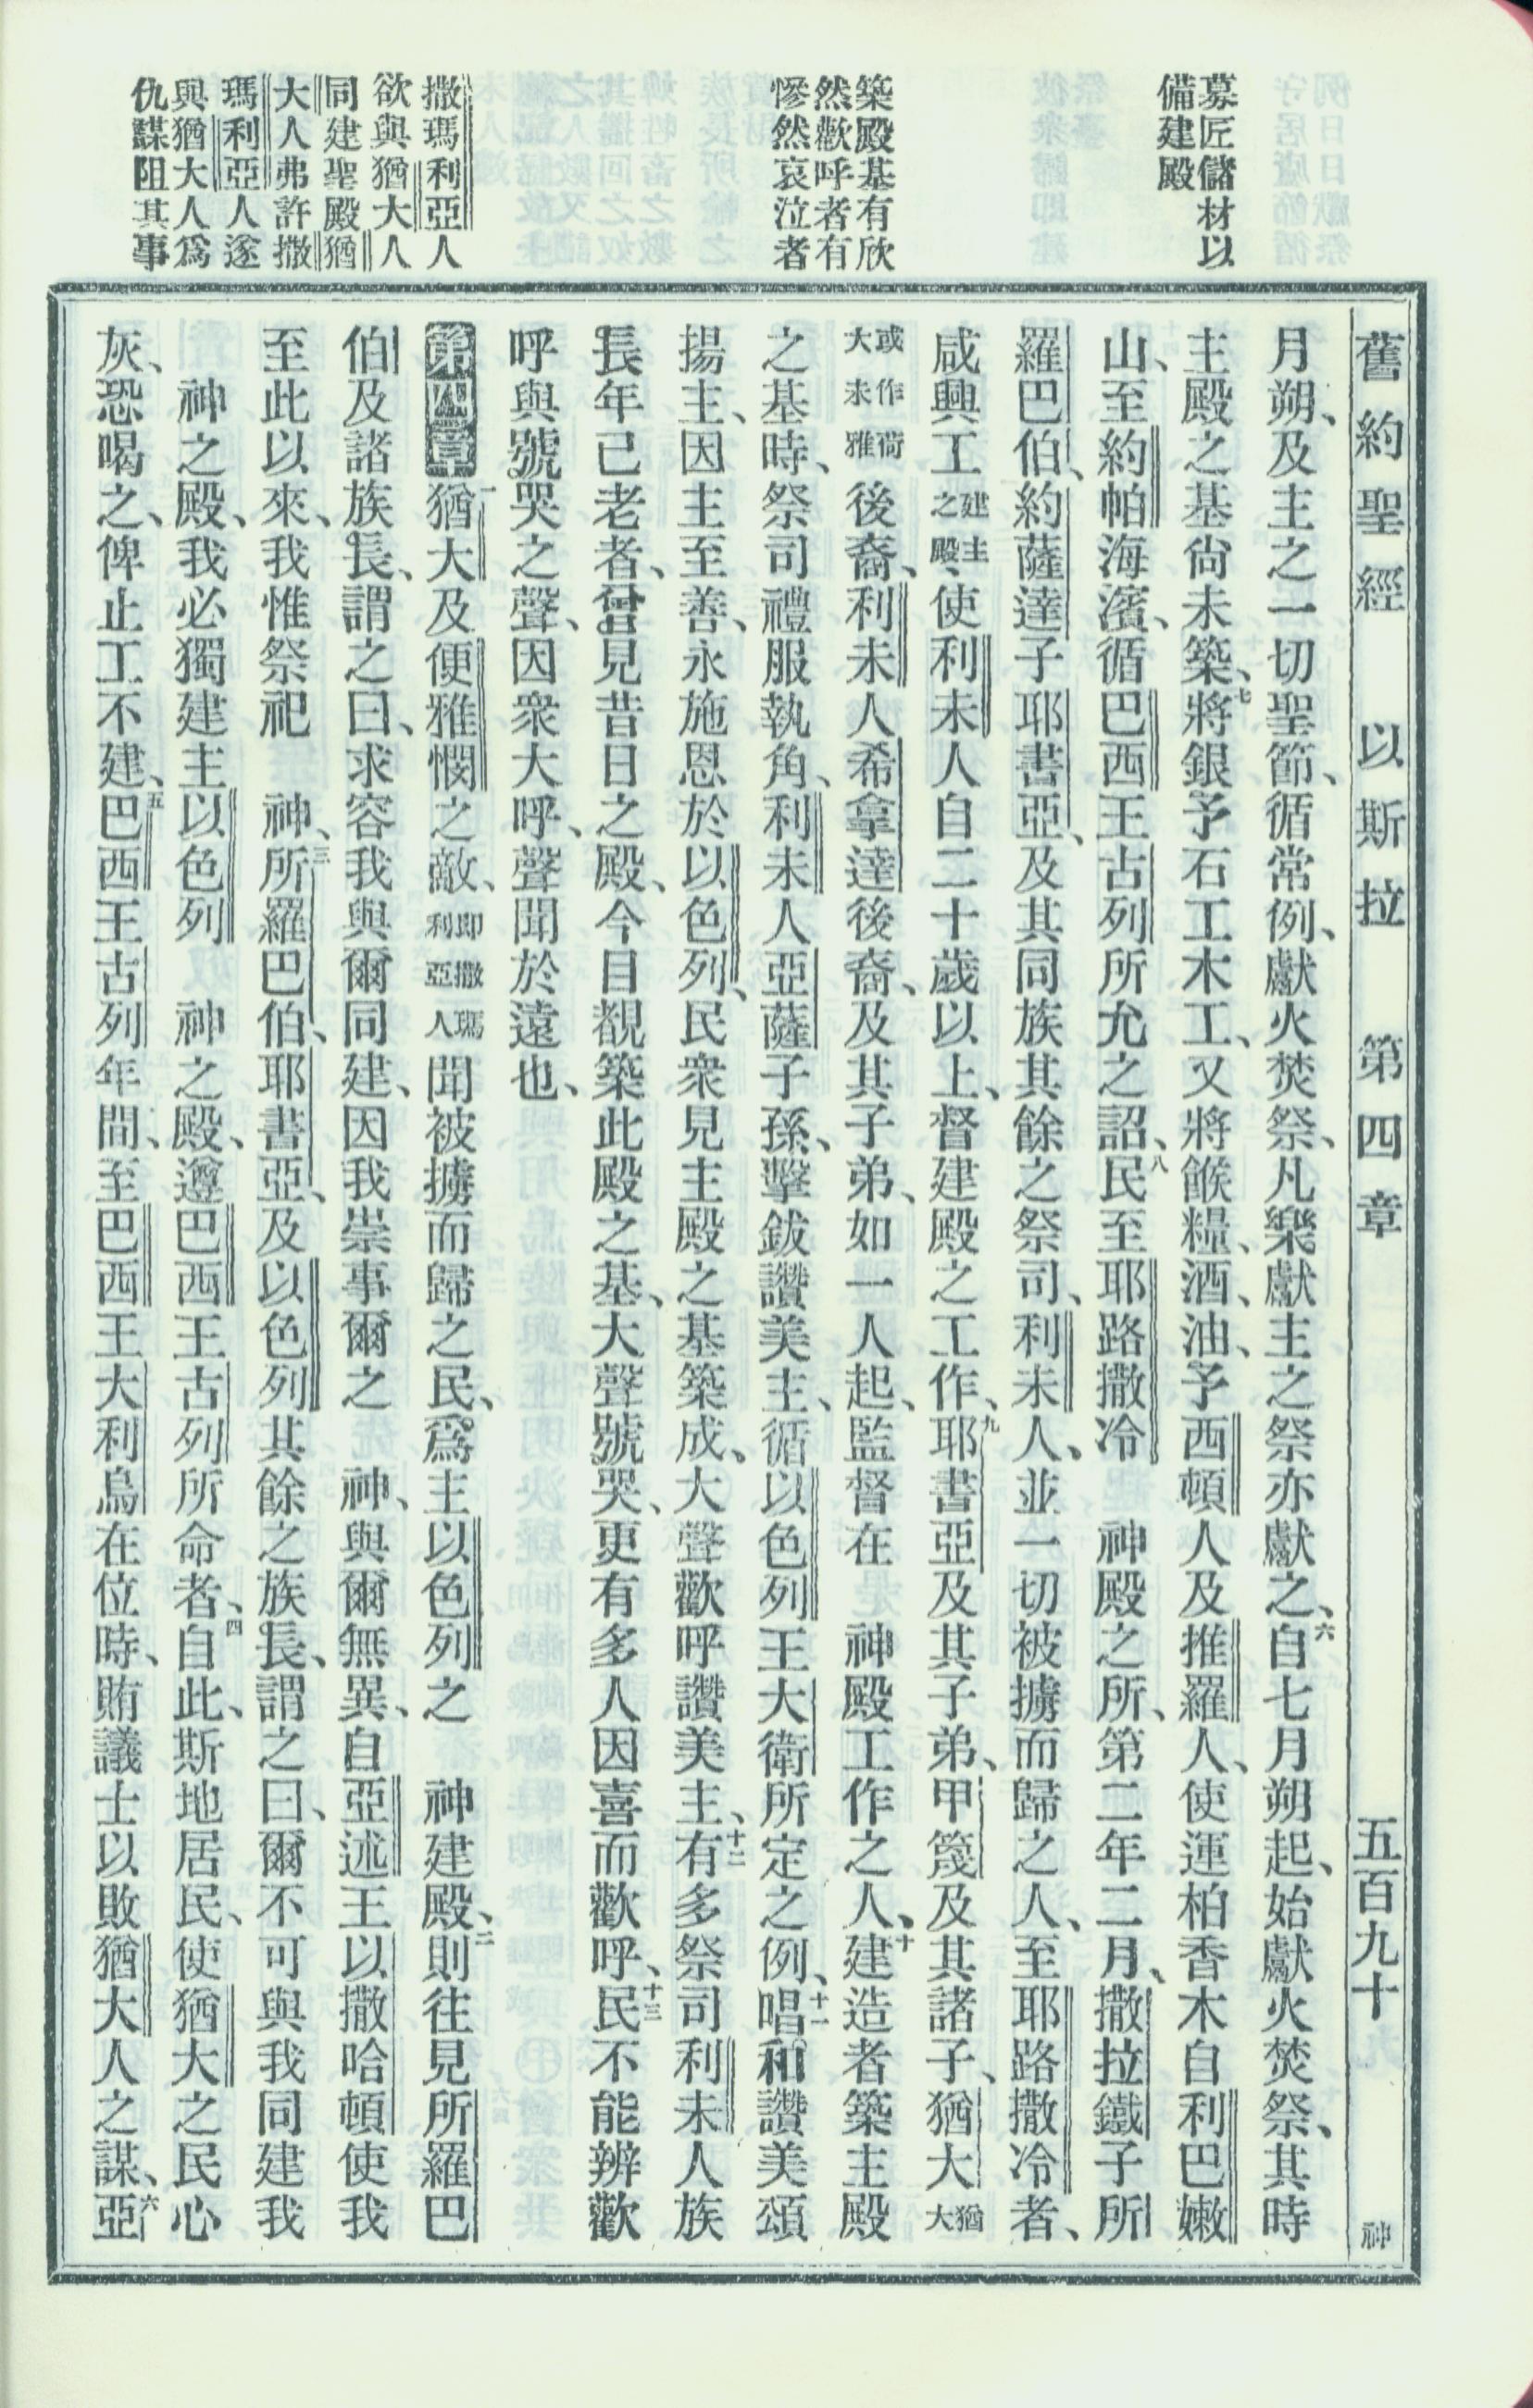 募匠儲材以
備建殿
築殿基有欣
然歡呼者有
慘然哀泣者
撒瑪利亞人
欲與猶大人
同建聖殿猶
大人弗許撒
瑪利亞人遂
與猶大人爲
仇謀阻其事
舊約聖經 以斯拉 第四章 五百九十 神
月朔、及主之一切聖節、循常例、獻火焚祭、凡樂獻主之祭亦獻之、六自七月朔起、始獻火焚祭、其時
主殿之基尙未築、七將銀予石工木工、又將餱糧、酒、油、予西頓人及推羅人、使運柏香木自利巴嫩
山、至約帕海濱、循巴西王古列所允之詔、八民至耶路撒冷 神殿之所、第二年二月、撒拉鐵子所
羅巴伯、約薩達子耶書亞、及其同族其餘之祭司、利未人、並一切被擄而歸之人、至耶路撒冷者、
咸興工建主之殿、使利未人自二十歲以上、督建殿之工作、九耶書亞及其子弟、甲篾及其諸子、猶大猶大
或作荷大未雅後裔、利未人希拿達後裔、及其子弟、如一人起、監督在 神殿工作之人、十建造者築主殿
之基時、祭司禮服執角、利未人亞薩子孫、擊鈸讚美主、循以色列王大衛所定之例、十一唱和讚美頌
揚主、因主至善、永施恩於以色列、民衆見主殿之基築成、大聲歡呼讚美主、十二有多祭司利未人族
長年已老者、曾見昔日之殿、今目覩築此殿之基、大聲號哭、更有多人因喜而歡呼、十三民不能辨歡
呼與號哭之聲、因衆大呼、聲聞於遠也、
第四章一猶大及便雅憫之敵、卽撒瑪利亞人聞被擄而歸之民、爲主以色列之 神建殿、二則往見所羅巴
伯及諸族長、謂之曰、求容我與爾同建、因我崇事爾之 神、與爾無異、自亞述王以撒哈頓使我
至此以來、我惟祭祀 神、三所羅巴伯、耶書亞、及以色列其餘之族長、謂之曰、爾不可與我同建我
神之殿、我必獨建主以色列 神之殿、遵巴西王古列所命者、四自此、斯地居民、使猶大之民心
灰、恐喝之、俾止工不建、五巴西王古列年間、至巴西王大利烏在位時、賄議士以敗猶大人之謀、六亞